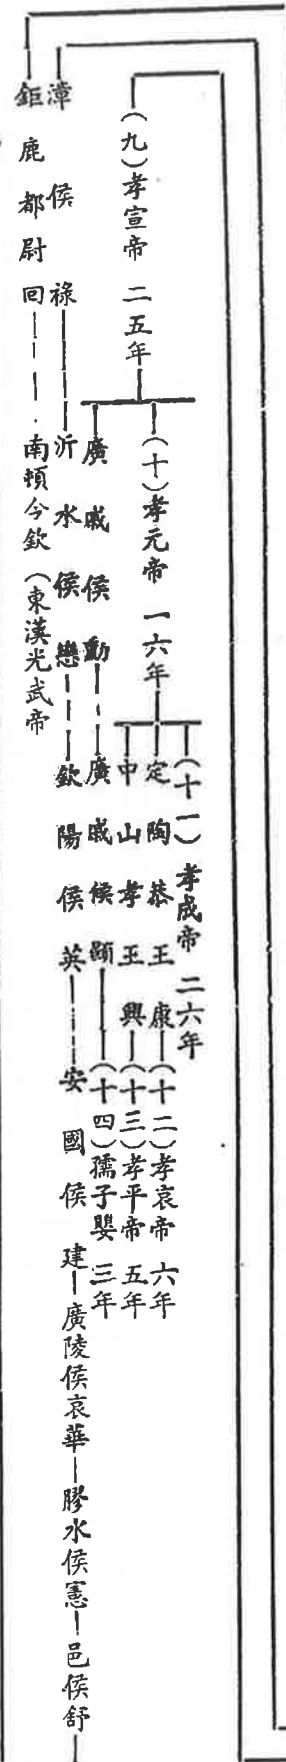 (九)孝宣帝 二五年
(十)孝元帝 一六年
(十一)孝成帝 二六年
定陶恭王康 (十二)孝哀帝 六年
中山孝王興 (十三)孝平帝 五年
廣戚侯勳 廣戚候顯 (十四)孺子嬰 三年
漳侯祿 沂水侯戀 欽陽侯英 安國侯建 廣陵侯哀華 膠水侯憲 邑侯舒
鉅鹿都尉回 南頓今欽(東漢光武帝